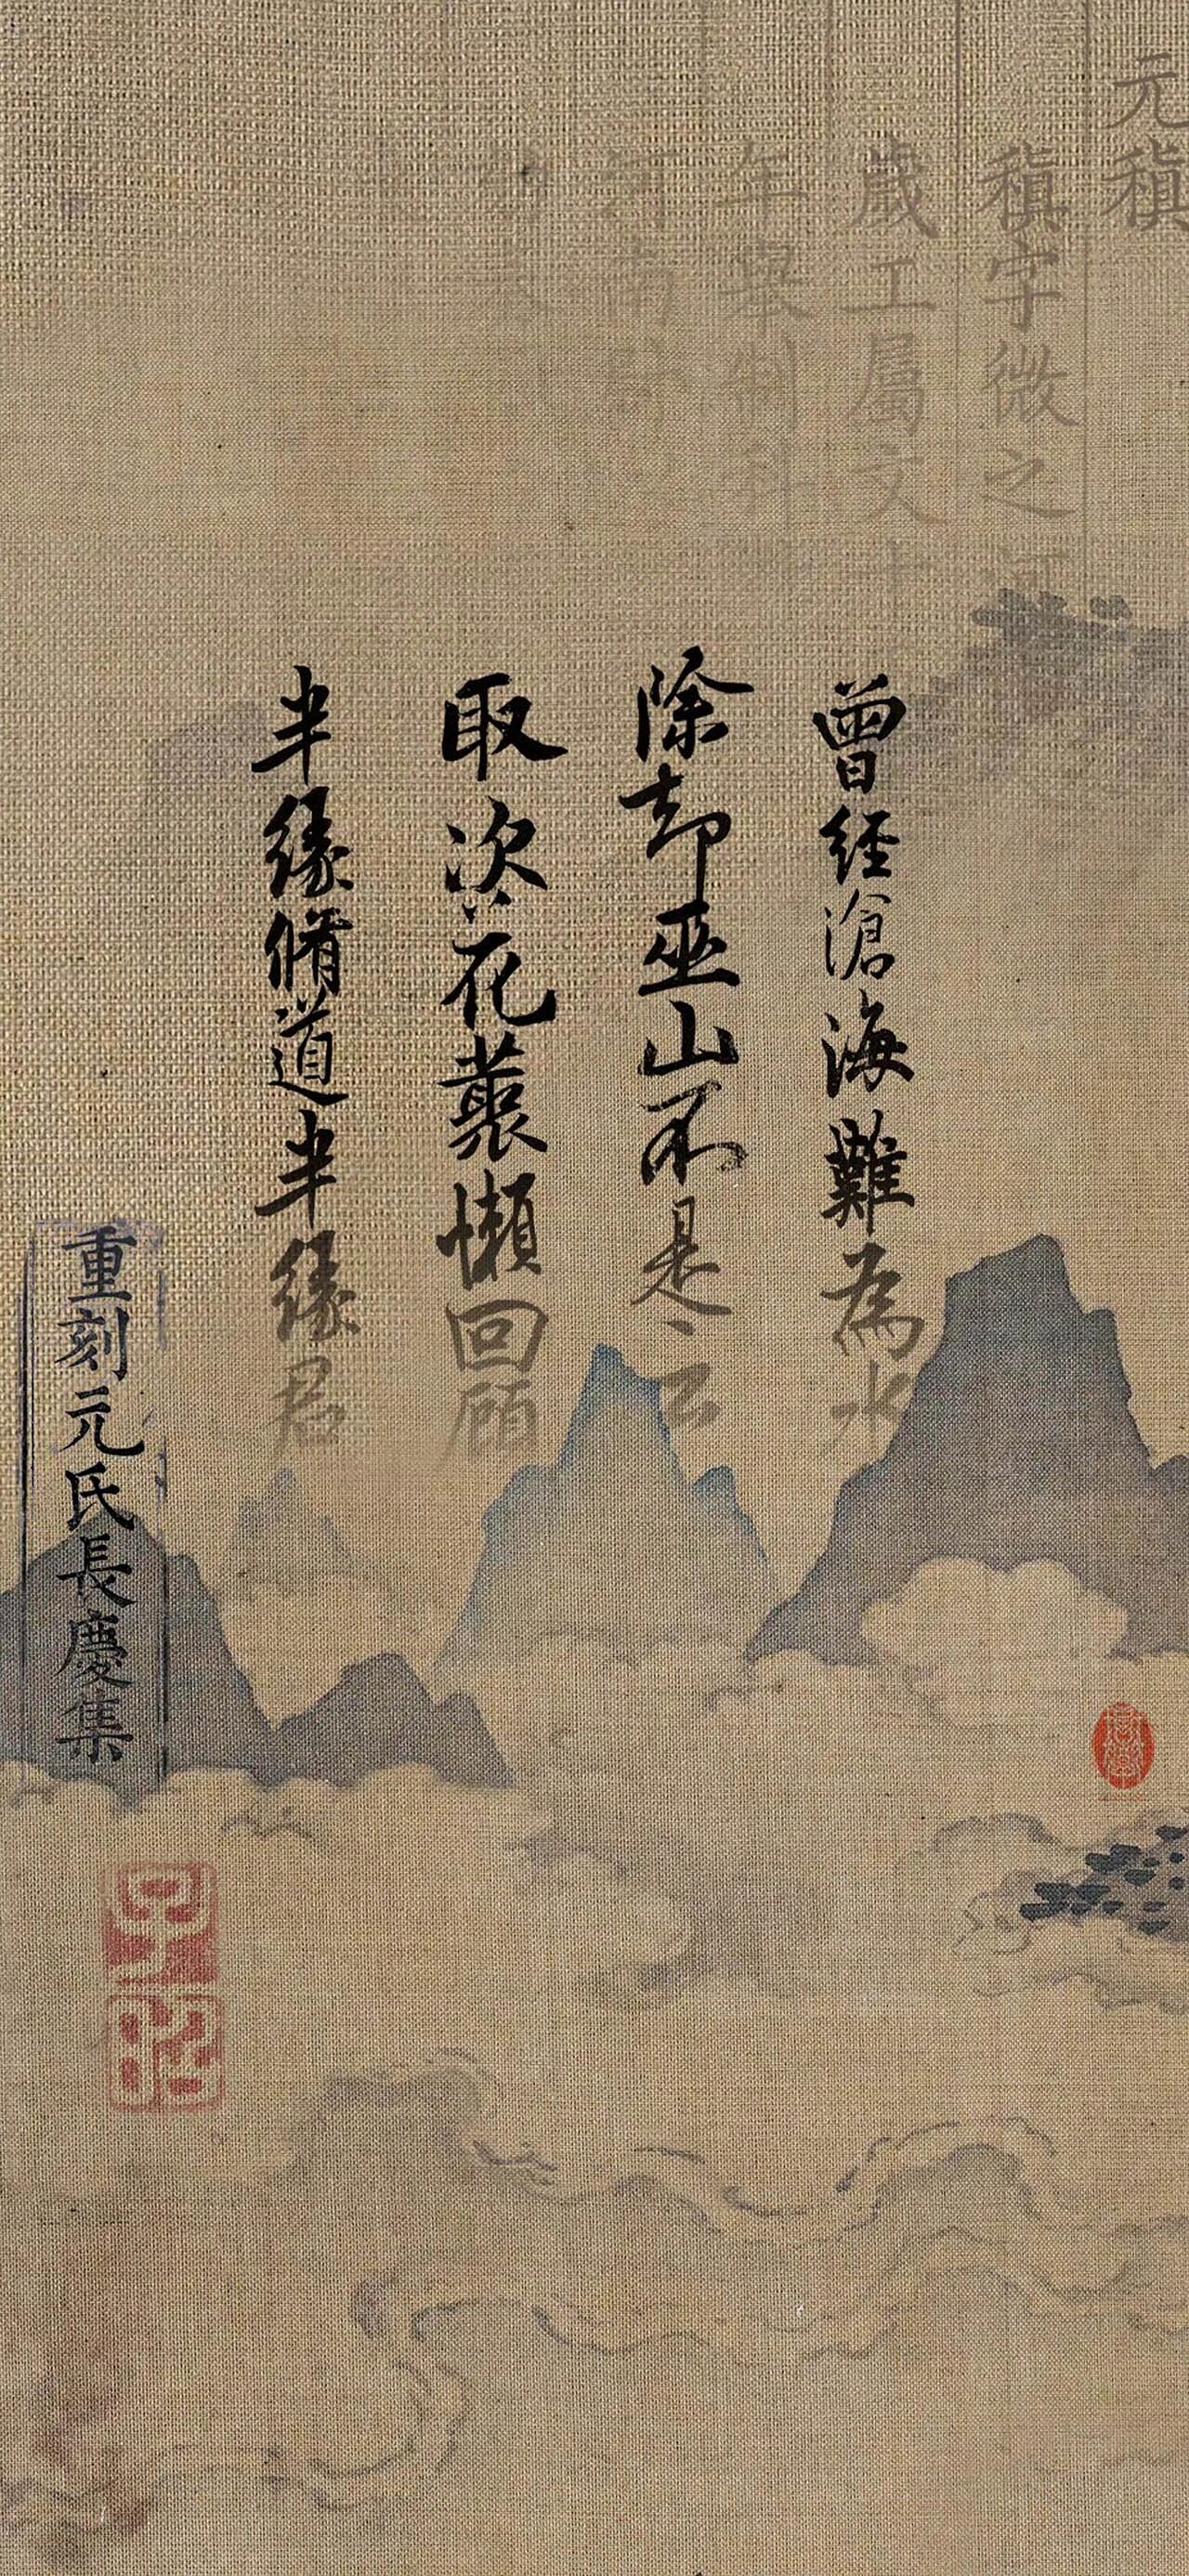 元稹
稹字微之河
歲工屬文十
年舉制科
河南
曾經滄海難為水
除却巫山不是云
取次花叢懶回顧
半緣脩道半緣君
重刻元氏長慶集